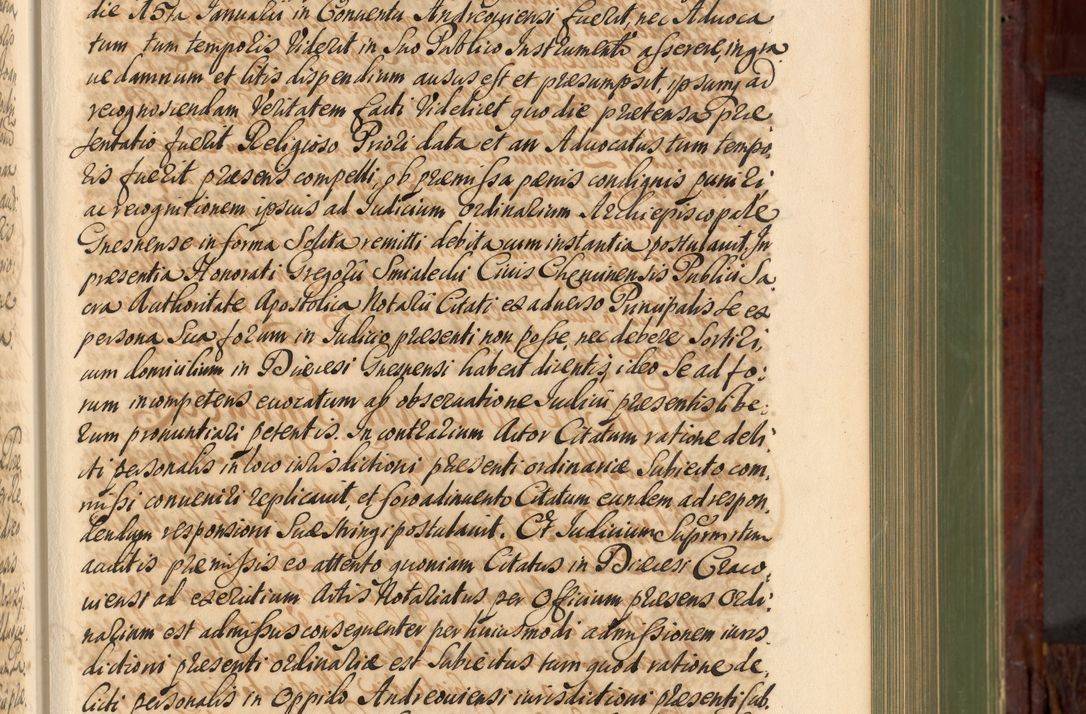 die 15ta Januarii in Conventu Andreoviensi fuerit, nec Advoca
tum tum temporis viderit in suo Publico Instrumento asserere, in gra
ve damnum et litis dispendium ausus est et præsumpsit, ipsumq ad
recognoscendam Veritatem facti videlicet quo die prætensa Præ
sentatio fuerit Religioso Priori data et an Advocatus tum tempo
ris fuerit præsens compelli, ob præmissa pænis condignis puniri,
ac recognitionem ipsius ad Iudicium Ordinarium Archiepiscopale
Gnesnense in forma solita remitti debita cum instantia postulavit, In
præsentia Honorati Gregorii Smialecki Civis Chencinensis Publici Sa
cra Authoritate Apostolica Notarii Citati ex adverso Principalis se ex
persona sua forum in Iudicio præsenti non posse, nec debere sortiri,
cum domicilium in Diæcesi Gnesnensi habeat dicentis, ideo se ad fo:
rum incompetens evocatum ab observatione Iudicii præsentis libe:
rum pronuntiari petentis. In contrarium Actor Citatum ratione deli
cti personalis in loco iurisdictioni præsenti ordinariæ subiecto com,
missi conveniri replicavit, et foro adinvento Citatum eundem ad respon,
dendum responsioni suæ stringi postulavit. Et Iudicium Supminsm
auditis præmissis eo attento quoniam Citatus in Diæcesi Craco,
viensi ad exercitium Artis Notariatus per Officium præsens Ordi
narium est admissus consequenter per huiusmodi admissionem iuris
dictioni præsenti ordinariæ est subiectus tum quod ratione de,
licti personalis in Oppido Andreoviensi iurisdictioni præsenti sub